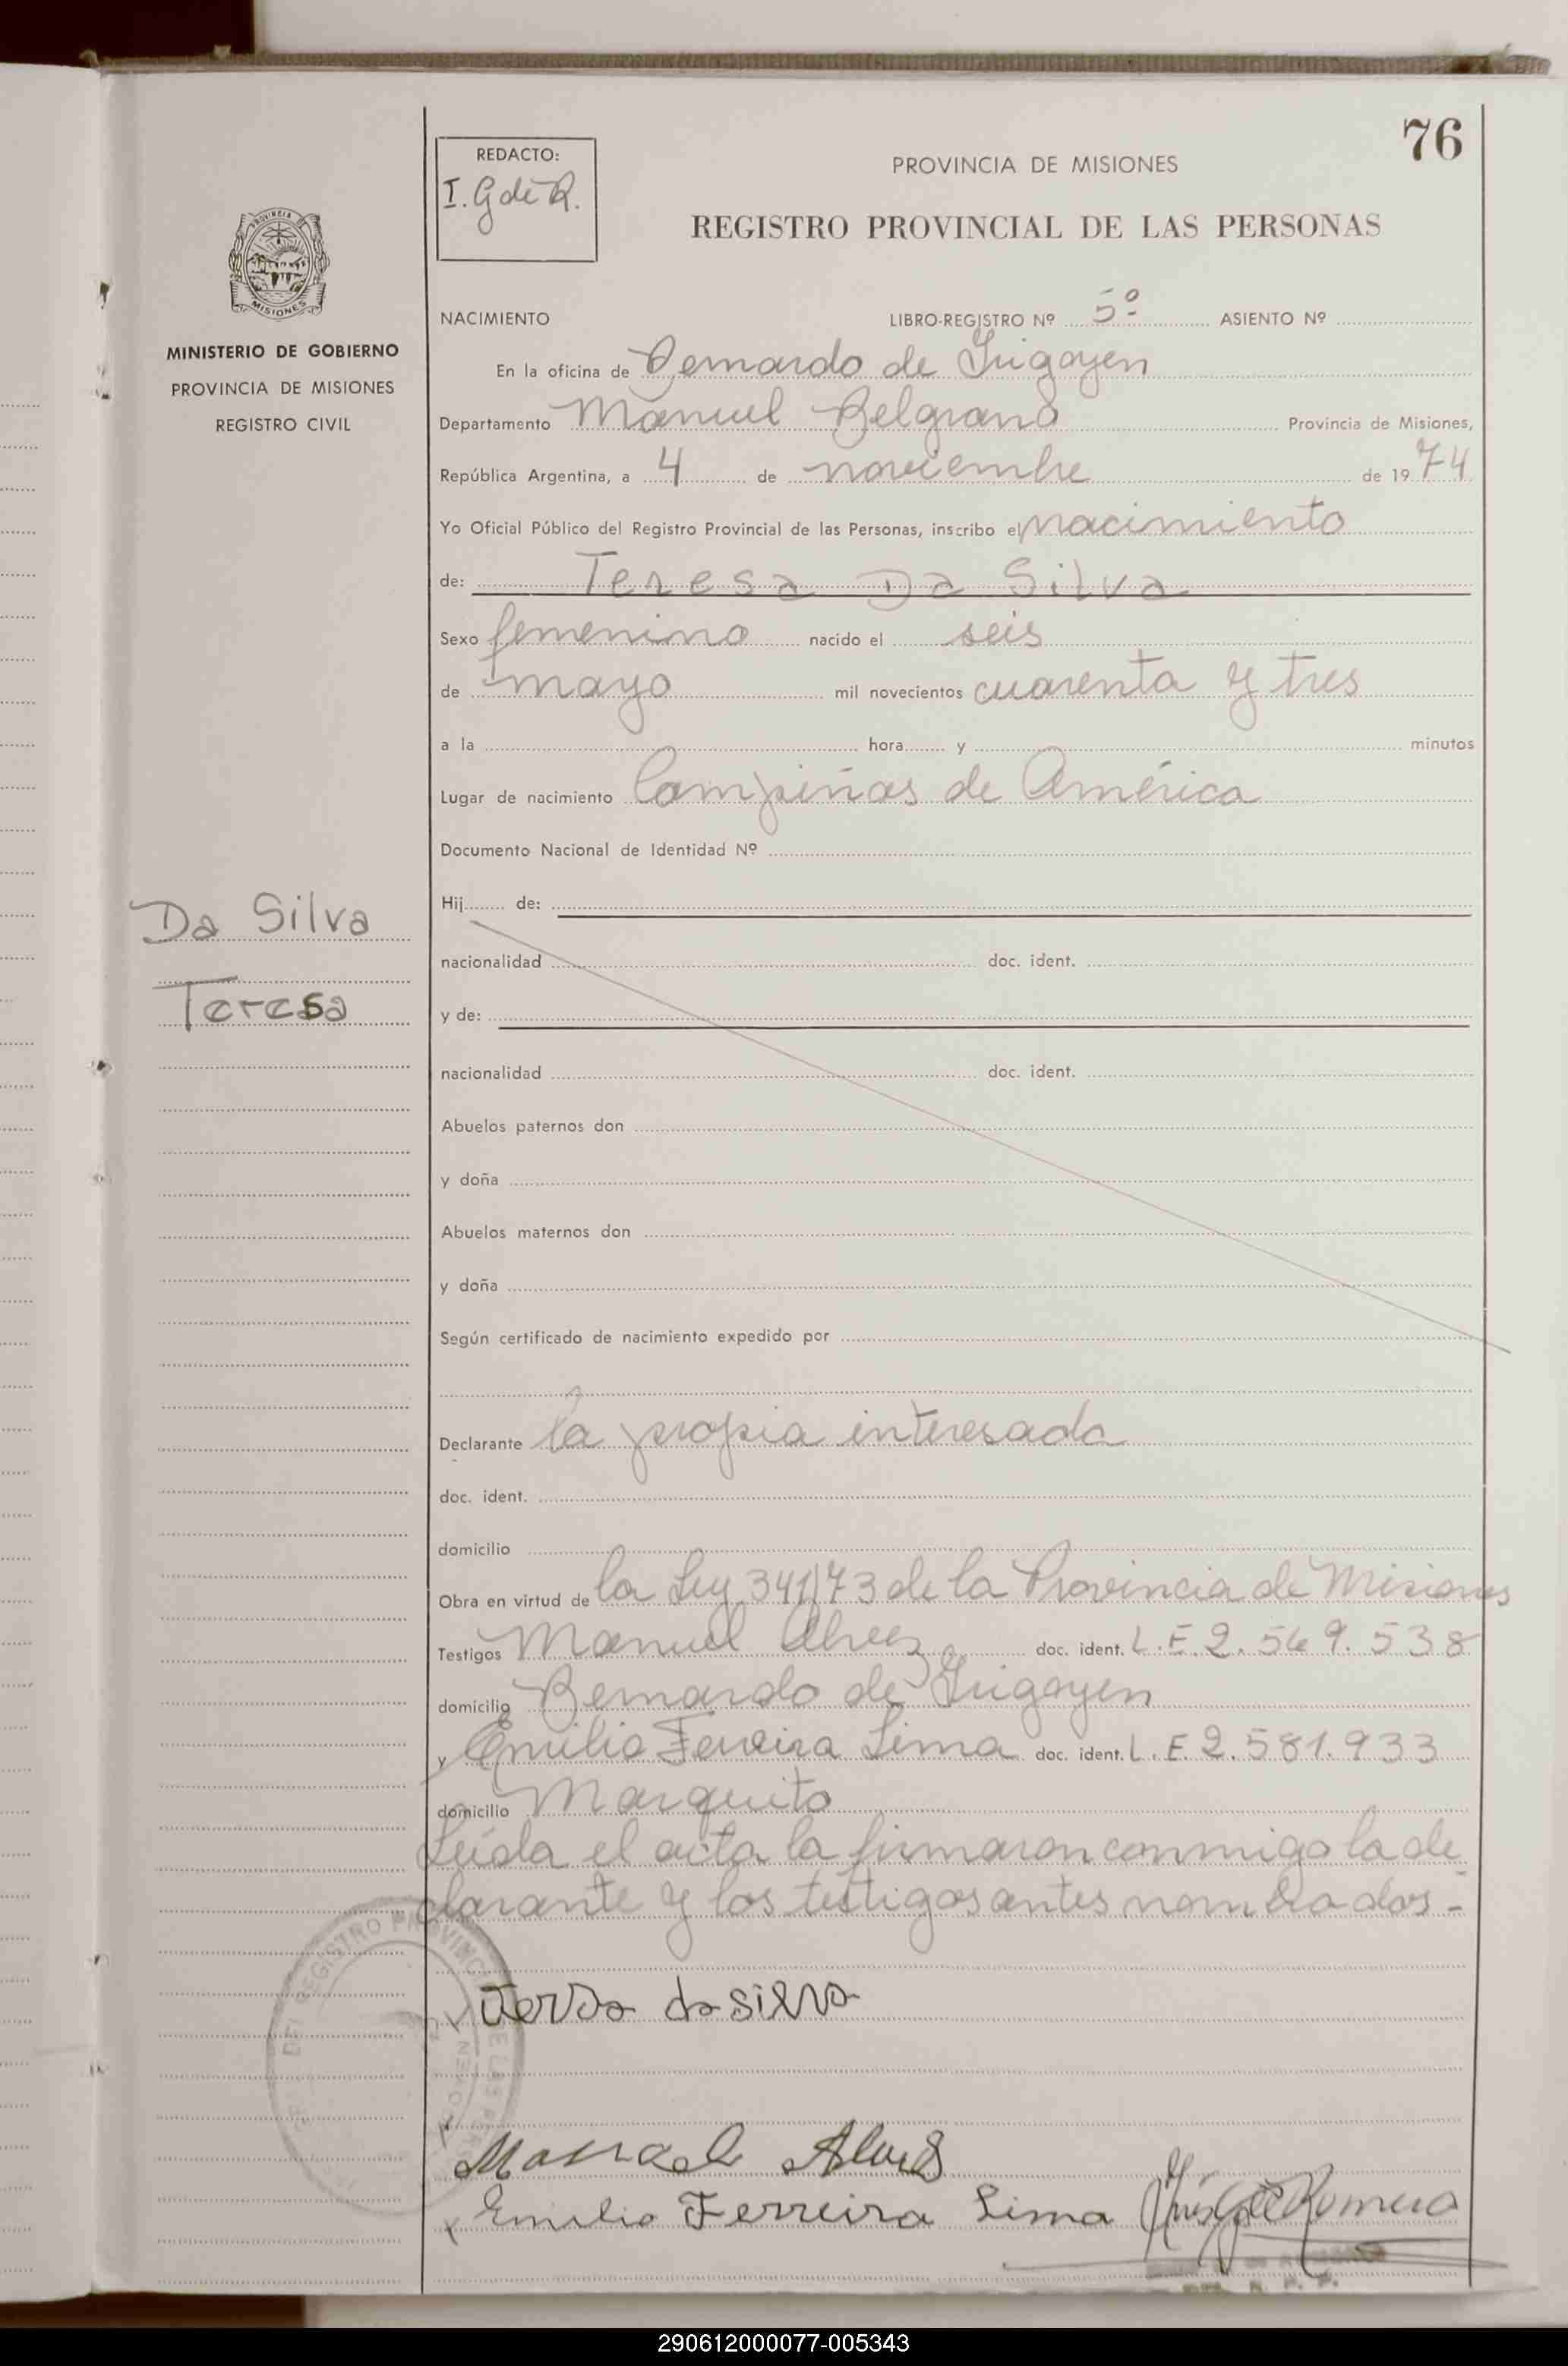 76
REDACTO:
I. G de R.
PROVINCIA DE MISIONES
REGISTRO PROVINCIAL DE LAS PERSONAS
MISIONES
MINISTERIO DE GOBIERNO
PROVINCIA DE MISIONES
REGISTRO CIVIL
NACIMIENTO LIBRO-REGISTRO Nº 5º ASIENTO Nº
En la oficina de Bernardo de Irigoyen
Departamento Manuel Belgrano Provincia de Misiones,
República Argentina, a 4 de noviembre de 1974
Yo Oficial Público del Registro Provincial de las Personas, inscribo el nacimiento
de: Teresa Da Silva
Sexo femenino nacido el seis
de mayo mil novecientos cuarenta y tres
a la hora y minutos
Lugar de nacimiento Campiñas de América
Documento Nacional de Identidad Nº
Da Silva
Teresa
Hij de:
nacionalidad doc. ident.
y de:
nacionalidad doc. ident.
Abuelos paternos don
y doña
Abuelos maternos don
y doña
Según certificado de nacimiento expedido por
Declarante la propia interesada
doc. ident.
domicilio
Obra en virtud de la Ley 341/73 de la Provincia de Misiones
Testigos Manuel Alvez doc. ident. L.E. 2.569.538
domicilio Bernardo de Irigoyen
y Emilio Ferreira Lima doc. ident. L.E. 2.581.933
domicilio Marquito
Leída el acta la firmaron conmigo la de
clarante y los testigos antes nombrados -
da silva
Manuel Alves
x Emilio Ferreira Lima
Romero
290612000077-005343